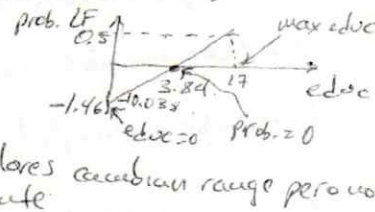 prob. LF
0.5
max educ
3.84
17
educ
-1.461
0.038
educ=0
prob.=0
lores cambian range pero no
nte